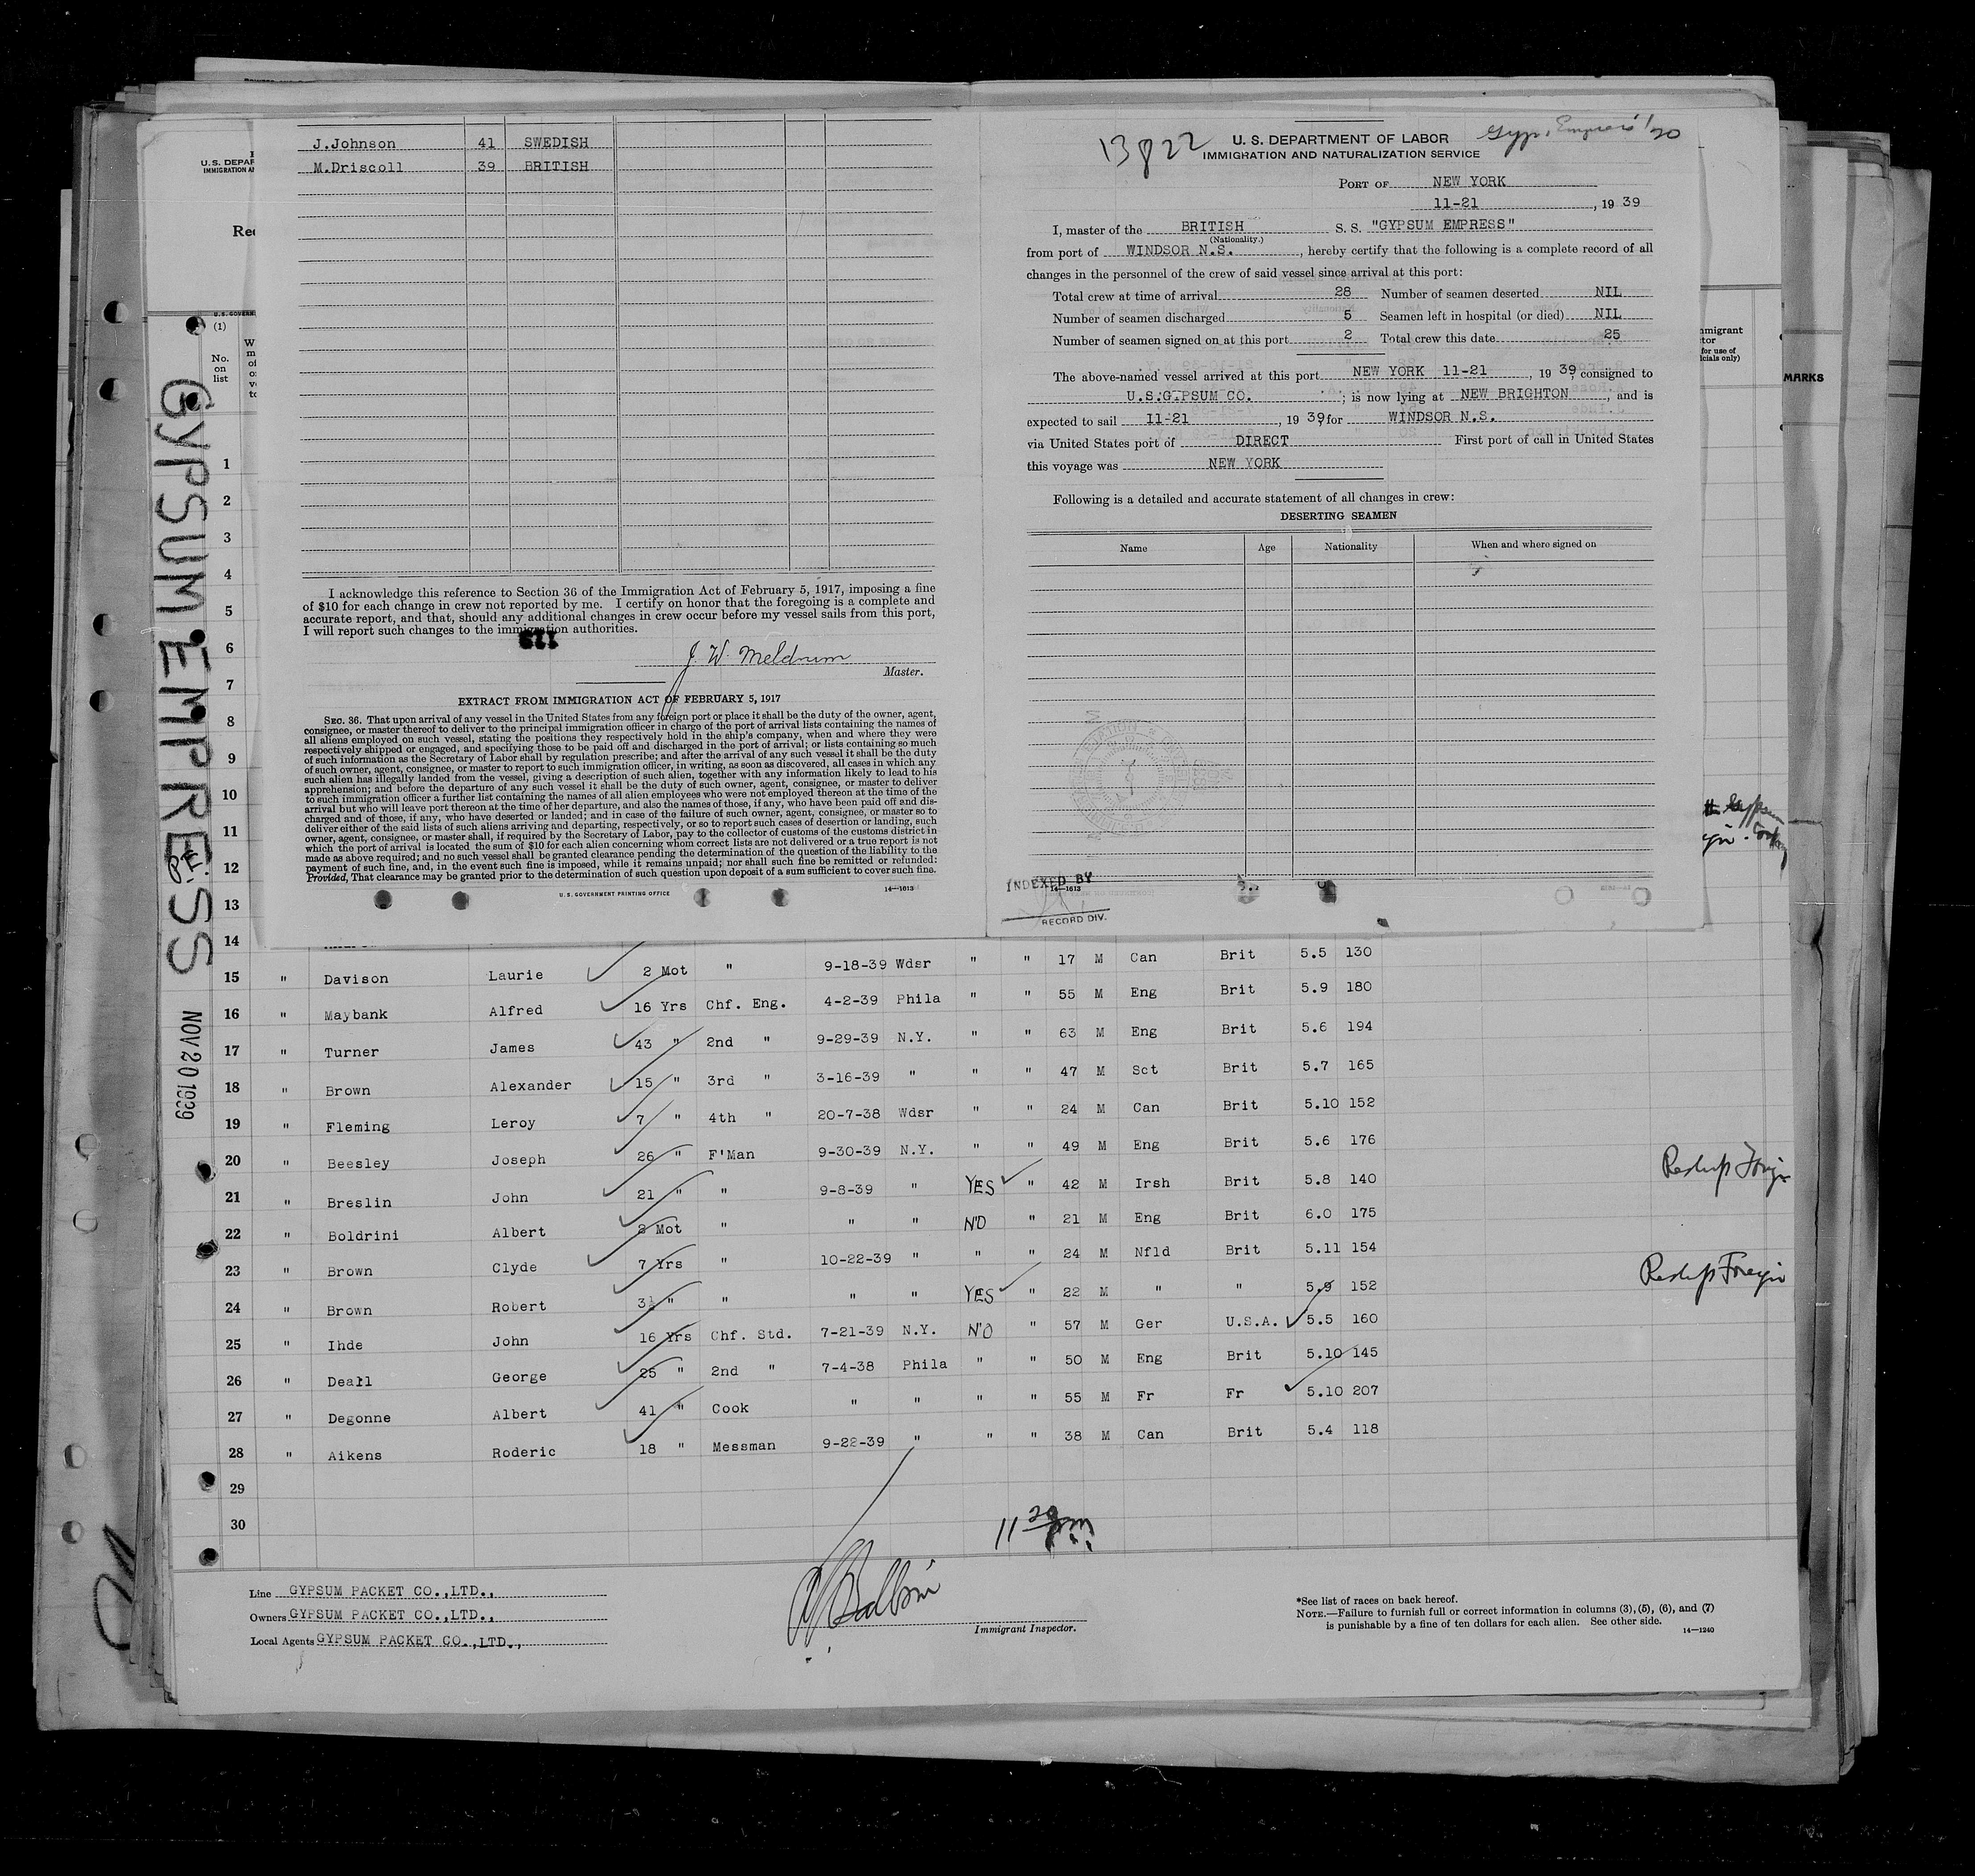 J.Johnson 41 SWEDISH
M.Driscoll 39 BRITISH
I acknowledge this reference to Section 36 of the Immigration Act of February 5, 1917, imposing a fine
of $10 for each change in crew not reported by me. I certify on honor that the foregoing is a complete and
accurate report, and that, should any additional changes in crew occur before my vessel sails from this port,
I will report such changes to the immigration authorities.
J. W. Meldrum
Master.
EXTRACT FROM IMMIGRATION ACT OF FEBRUARY 5, 1917
SEC. 36. That upon arrival of any vessel in the United States from any foreign port or place it shall be the duty of the owner, agent,
consignee, or master thereof to deliver to the principal immigration officer in charge of the port of arrival lists containing the names of
all aliens employed on such vessel, stating the positions they respectively hold in the ship's company, when and where they were
respectively shipped or engaged, and specifying those to be paid off and discharged in the port of arrival; or lists containing so much
of such information as the Secretary of Labor shall by regulation prescribe; and after the arrival of any such vessel it shall be the duty
of such owner, agent, consignee, or master to report to such immigration officer, in writing, as soon as discovered, all cases in which any
such alien has illegally landed from the vessel, giving a description of such alien, together with any information likely to lead to his
apprehension; and before the departure of any such vessel it shall be the duty of such owner, agent, consignee, or master to deliver
to such immigration officer a further list containing the names of all alien employees who were not employed thereon at the time of the
arrival but who will leave port thereon at the time of her departure, and also the names of those, if any, who have been paid off and dis-
charged and of those, if any, who have deserted or landed; and in case of the failure of such owner, agent, consignee, or master so to
deliver either of the said lists of such aliens arriving and departing, respectively, or so to report such cases of desertion or landing, such
owner, agent, consignee, or master shall, if required by the Secretary of Labor, pay to the collector of customs of the customs district in
which the port of arrival is located the sum of $10 for each alien concerning whom correct lists are not delivered or a true report is not
made as above required; and no such vessel shall be granted clearance pending the determination of the question of the liability to the
payment of such fine, and, in the event such fine is imposed, while it remains unpaid; nor shall such fine be remitted or refunded:
Provided, That clearance may be granted prior to the determination of such question upon deposit of a sum sufficient to cover such fine.
U.S. GOVERNMENT PRINTING OFFICE 14—1613
13822
Gyp. Empress 1/20
U. S. DEPARTMENT OF LABOR
IMMIGRATION AND NATURALIZATION SERVICE
PORT OF NEW YORK
11-21, 1939
I, master of the BRITISH S. S. "GYPSUM EMPRESS"
(Nationality.)
from port of WINDSOR N.S., hereby certify that the following is a complete record of all
changes in the personnel of the crew of said vessel since arrival at this port:
Total crew at time of arrival 28 Number of seamen deserted NIL
Number of seamen discharged 5 Seamen left in hospital (or died) NIL
Number of seamen signed on at this port 2 Total crew this date 25
The above-named vessel arrived at this port NEW YORK 11-21, 1939, consigned to
U.S.GYPSUM CO.; is now lying at NEW BRIGHTON, and is
expected to sail 11-21, 1939, for WINDSOR N.S.
via United States port of DIRECT First port of call in United States
this voyage was NEW YORK
Following is a detailed and accurate statement of all changes in crew:
DESERTING SEAMEN
Name Age Nationality When and where signed on
INDEXED BY
14—1613
RECORD DIV.
U. S. DEPAR
IMMIGRATION A
Rec
U.S. GOVERN
(1)
No. on list
mmigrant
tor
for use of
icials only)
MARKS
GYPSUM EMPRESS
NOV 20 1939
1
2
3
4
5
6
7
8
9
10
11
12
13
14
15 " Davison Laurie 2 Mot " 9-18-39 Wdsr " " 17 M Can Brit 5.5 130
16 " Maybank Alfred 16 Yrs Chf. Eng. 4-2-39 Phila " " 55 M Eng Brit 5.9 180
17 " Turner James 43 " 2nd " 9-29-39 N.Y. " " 63 M Eng Brit 5.6 194
18 " Brown Alexander 15 " 3rd " 3-16-39 " " " 47 M Sct Brit 5.7 165
19 " Fleming Leroy 7 " 4th " 20-7-38 Wdsr " " 24 M Can Brit 5.10 152
20 " Beesley Joseph 26 " F'Man 9-30-39 N.Y. " " 49 M Eng Brit 5.6 176
21 " Breslin John 21 " " 9-8-39 " YES " 42 M Irsh Brit 5.8 140 Reship Foreign
22 " Boldrini Albert 8 Mot " " " NO " 21 M Eng Brit 6.0 175
23 " Brown Clyde 7 Yrs " 10-22-39 " " " 24 M Nfld Brit 5.11 154
24 " Brown Robert 3½ " " " " YES " 22 M " " 5.9 152 Reship Foreign
25 " Ihde John 16 Yrs Chf. Std. 7-21-39 N.Y. NO " 57 M Ger U.S.A. 5.5 160
26 " Deall George 25 " 2nd " 7-4-38 Phila " " 50 M Eng Brit 5.10 145
27 " Degonne Albert 41 " Cook " " " " 55 M Fr Fr 5.10 207
28 " Aikens Roderic 18 " Messman 9-22-39 " " " 38 M Can Brit 5.4 118
29
30
Line GYPSUM PACKET CO.,LTD.,
Owners GYPSUM PACKET CO.,LTD.,
Local Agents GYPSUM PACKET CO.,LTD.,
Immigrant Inspector.
*See list of races on back hereof.
NOTE.—Failure to furnish full or correct information in columns (3), (5), (6), and (7)
is punishable by a fine of ten dollars for each alien. See other side.
14—1240